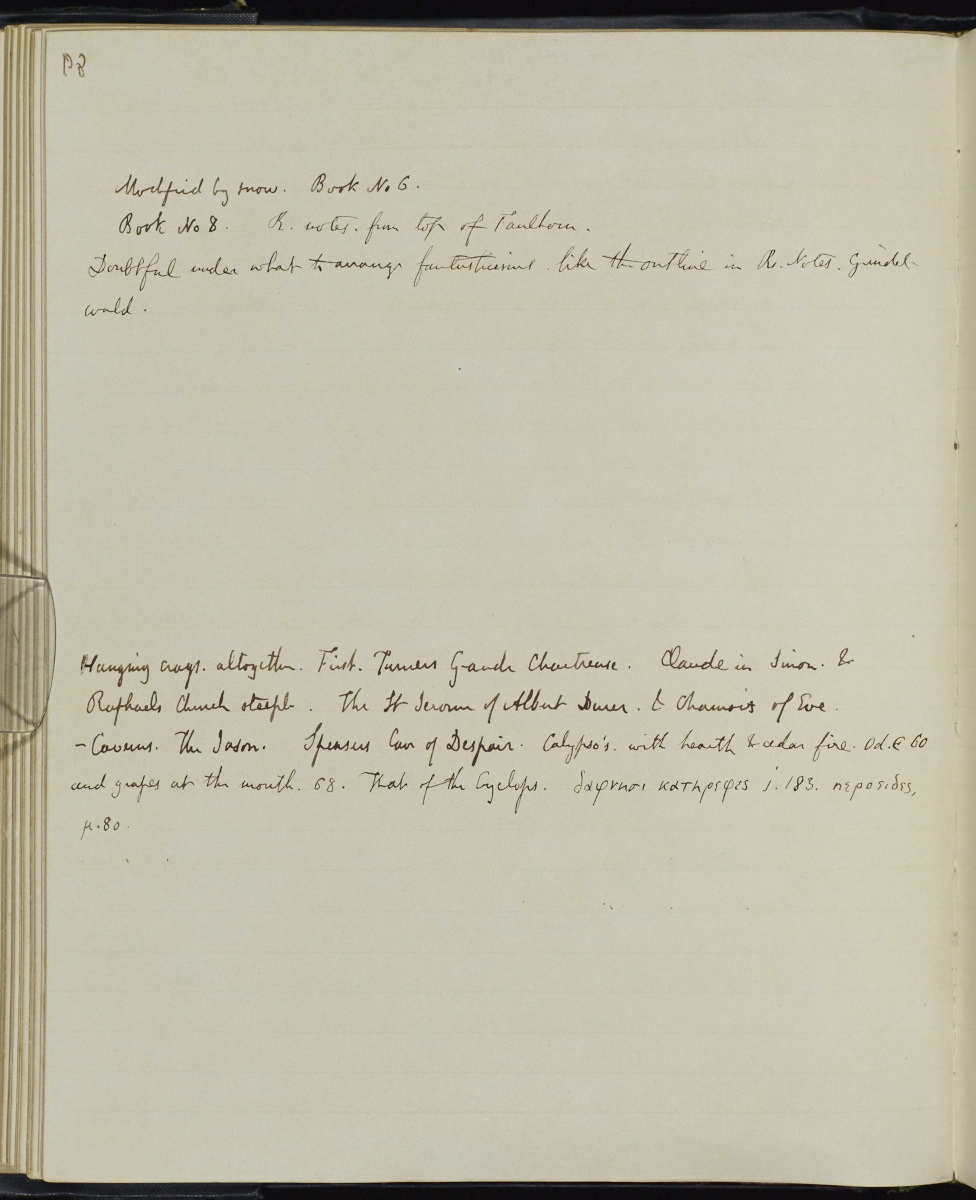 Modified by snow. Book No 6.
Book No 8. R. notes. from top of Faulhorn.
Doubtful under what to arrange fantasticisms. like the outline in R. Notes. Grindel-
wald.
Hanging crags. altogether. First. Turners Grande Chartreuse. Claude in Simon. &
Raphaels Church steeple. The St Jerome of Albert Durer. & Chamois of Eve.
- Caverns. The Jason. Spensers Cave of Despair. Calypso's. with hearth & cedar fire. Od. ε 60
and grapes at the mouth. 68. That of the Cyclops. δαφνησι κατηρεφες ι. 183. ηεροειδες,
μ. 80.